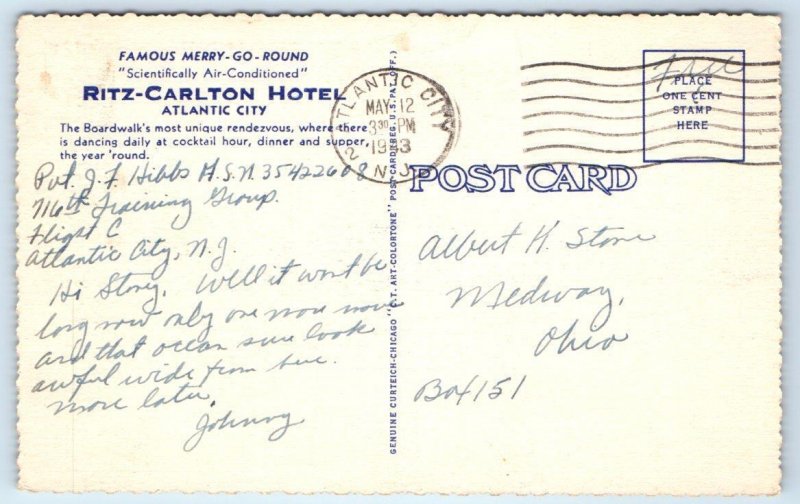 FAMOUS MERRY-GO-ROUND
"Scientifically Air-Conditioned"
RITZ-CARLTON HOTEL
ATLANTIC CITY
The Boardwalk's most unique rendezvous, where there
is dancing daily at cocktail hour, dinner and supper,
the year 'round.
Pvt. J. F. Hibbs A.S.N. 35422608
716th Training Group.
Flight C
Atlantic City, N.J.
Hi Stoney, Well it wont be
long now only one more move
and that ocean sure look
awful wide from here.
more later.
Johnny
GENUINE CURTEICH-CHICAGO "C.T. ART-COLORTONE" POST CARD (REG. U.S. PAT. OFF.)
ATLANTIC CITY
MAY 12
3 30 PM
1943
2 N.J.
Free
PLACE
ONE CENT
STAMP
HERE
POST CARD
Albert H. Stone
Medway,
Ohio
Box 151